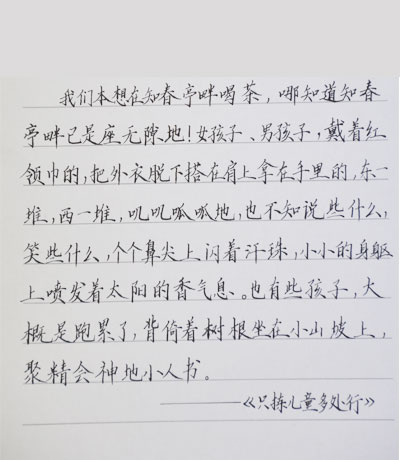 我们本想在知春亭畔喝茶，哪知道知春
亭畔已是座无隙地！女孩子、男孩子，戴着红
领巾的，把外衣脱下搭在肩上拿在手里的，东一
堆，西一堆，叽叽呱呱地，也不知说些什么，
笑些什么，个个鼻尖上闪着汗珠，小小的身躯
上喷发着太阳的香气息。也有些孩子，大
概是跑累了，背倚着树根坐在小山坡上，
聚精会神地小人书。
——《只拣儿童多处行》